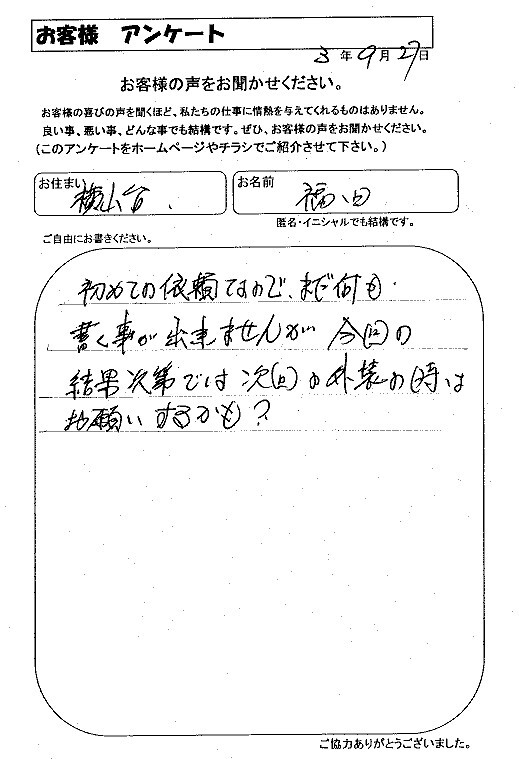 お客様 アンケート
3 年 9 月 27 日
お客様の声をお聞かせください。
お客様の喜びの声を聞くほど、私たちの仕事に情熱を与えてくれるものはありません。
良い事、悪い事、どんな事でも結構です。ぜひ、お客様の声をお聞かせください。
(このアンケートをホームページやチラシでご紹介させて下さい。)
お住まい 横山台、
お名前 福田
匿名・イニシャルでも結構です。
ご自由にお書きください。
初めての依頼なので、まだ何も
書く事が出来ませんが 今回の
結果次第では 次回の外装の時は
お願いするかも?
ご協力ありがとうございました。